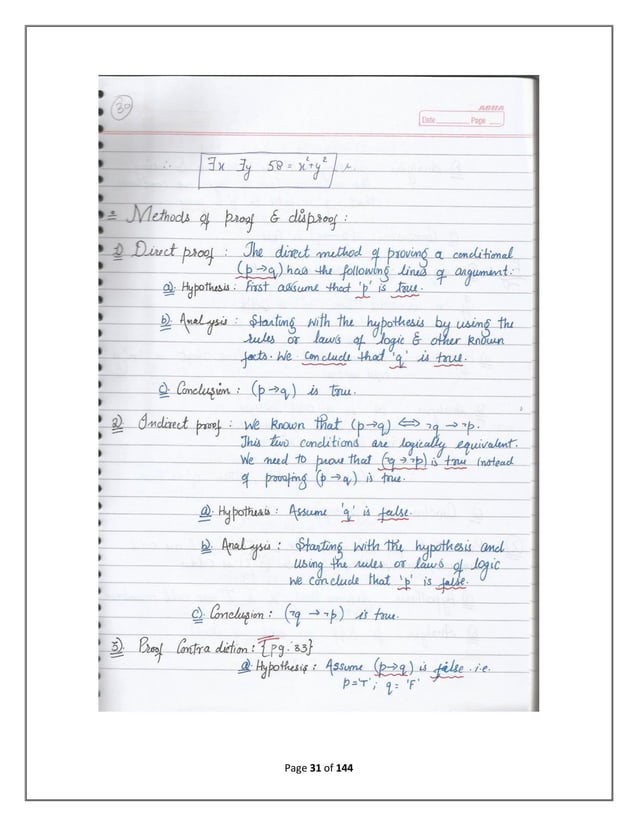 30
ASHA
Date Page
∴ ∃x ∃y 58 = x²+y²
* Methods of proof & disproof :
1) Direct proof : The direct method of proving a conditional
(p→q) has the following lines of argument:
a). Hypothesis : First assume that 'p' is true.
b). Analysis : Starting with the hypothesis by using the
rules or laws of logic & other known
facts. We conclude that 'q' is true.
c). Conclusion : (p→q) is true.
2). Indirect proof : We known that (p→q) ⟺ ¬q → ¬p.
This two conditions are logically equivalent.
We need to prove that (¬q→¬p) is true instead
of proofing (p→q) is true.
a). Hypothesis : Assume 'q' is false.
b). Analysis : Starting with the hypothesis and
using the rules or laws of logic
we conclude that 'p' is false.
c). Conclusion : (¬q → ¬p) is true.
3). Proof Contradiction : {pg. 33}
a). Hypothesis : Assume (p→q) is false. i.e.
p='T' ; q= 'F'
Page 31 of 144